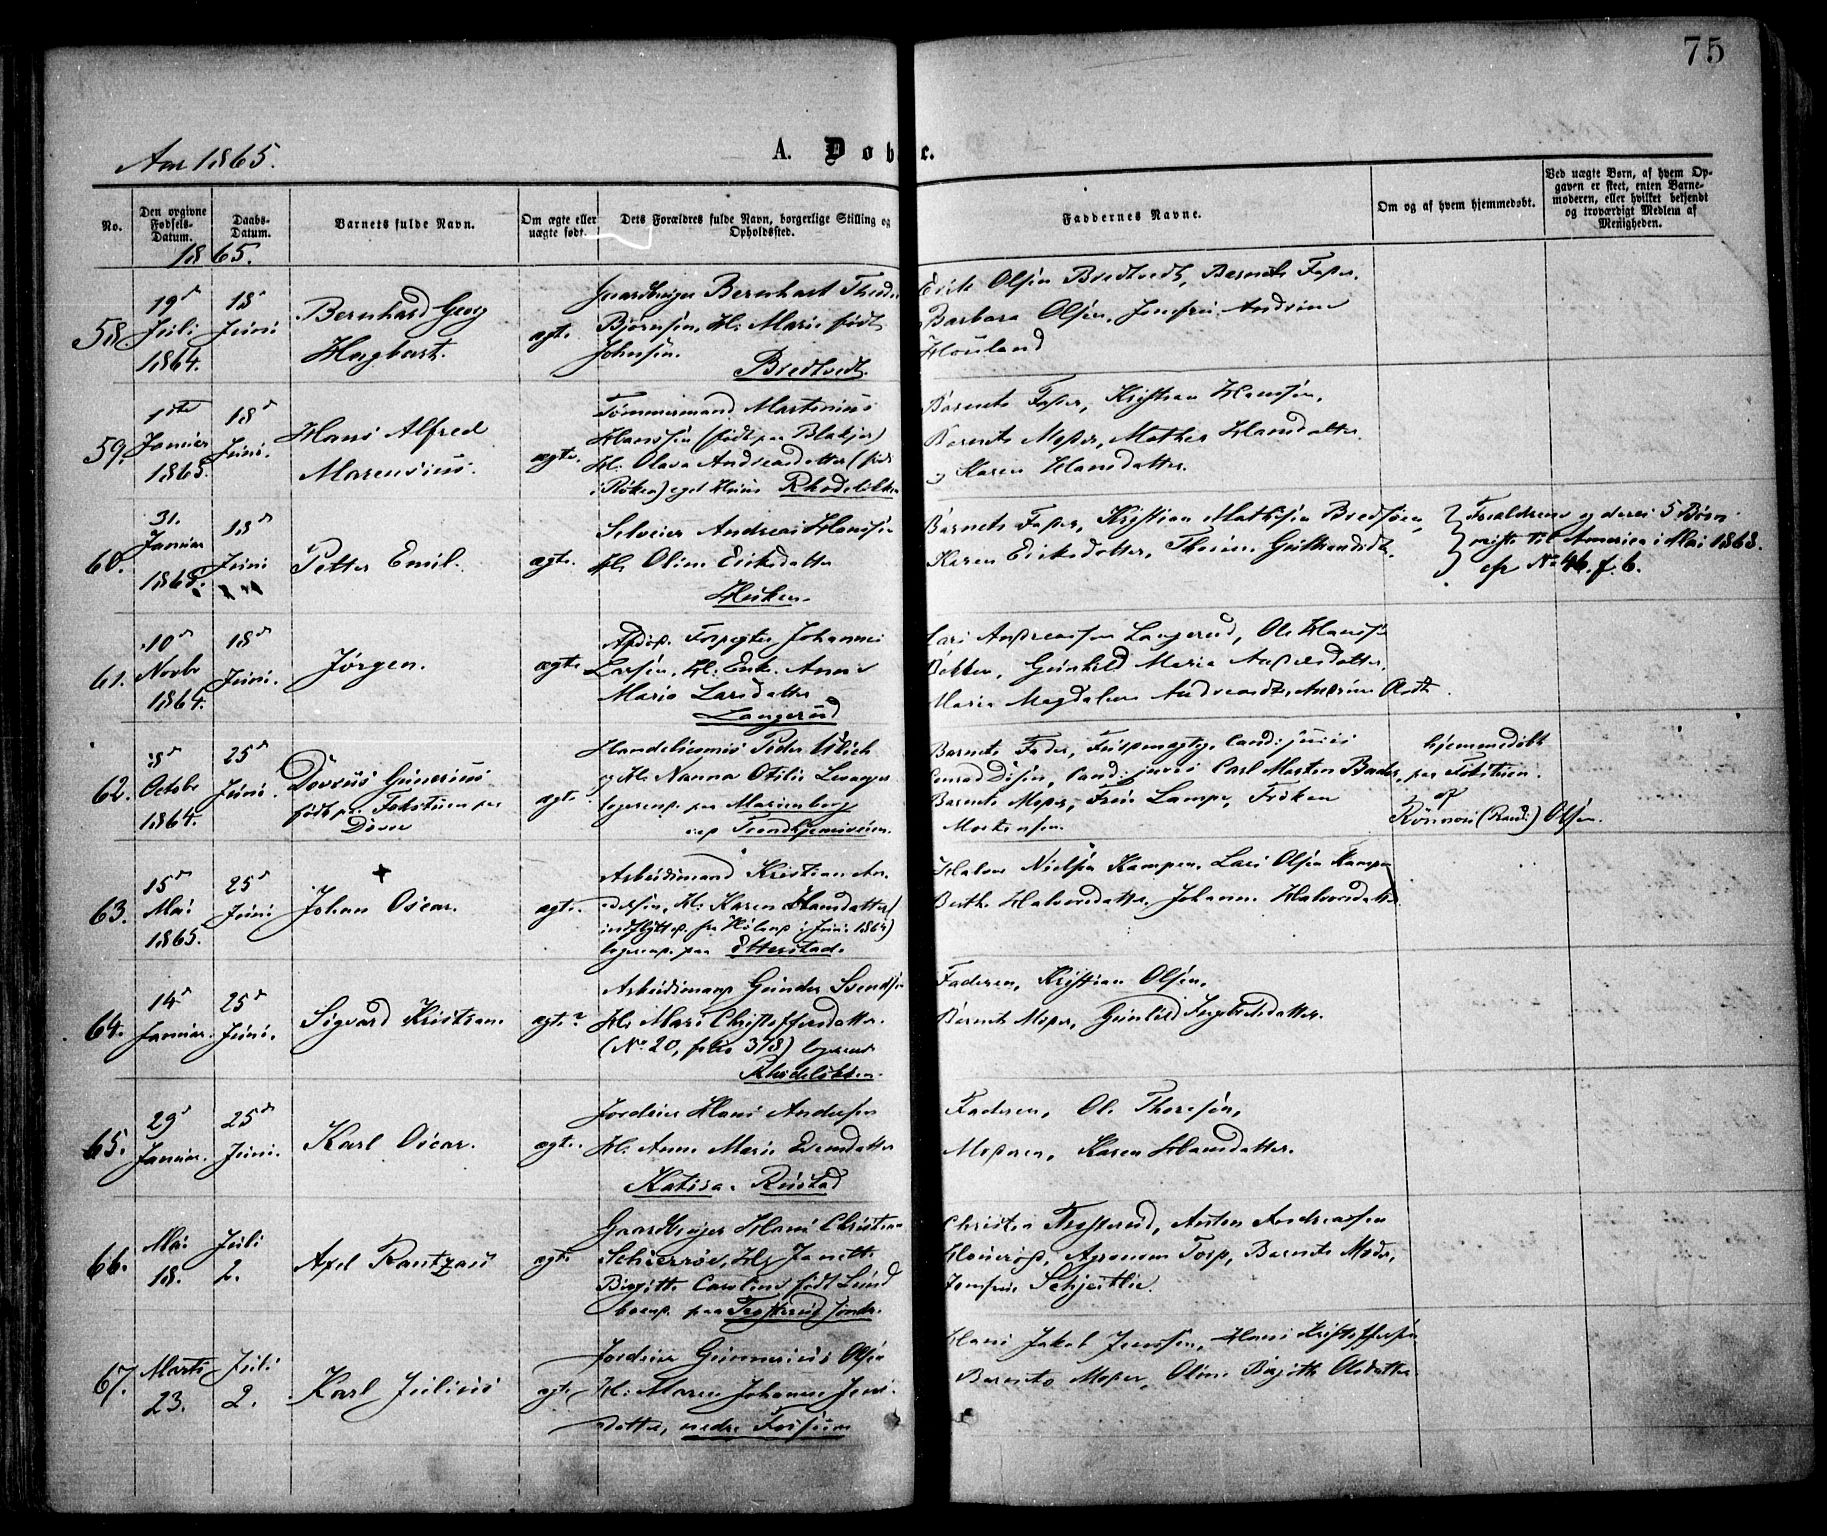 75
Aar 1865.
A. Døbte.
No.
Den opgivne Fødsels-Datum.
Daabs-Datum.
Barnets fulde Navn.
Om ægte eller uægte født.
Dets Forældres fulde Navn, borgerlige Stilling og Opholdssted.
Faddernes Navne.
Om og af hvem hjemmedøbt.
Ved uægte Børn, af hvem Opgaven er skeet, enten Barnemoderen, eller hvilket bekjendt og troværdigt Medlem af Menigheden.
1865.
58.
19de Juli 1864.
18de Juni
Bernhard Georg
Hagbart.
ægte.
Gaardbruger Bernhart Theodor
Bjørnsen, H: Marie født
Johnsen.
Bredtvedt.
Erik Olsen Bredtvedt, Barnets Fader,
Barbara Olsen, Jomfru Andrine
Houland
59.
1ste Januar 1865.
18de Juni.
Hans Alfred
Marensius.
ægte.
Tømmermand Martinius
Hanssen (født paa Blakjer)
H: Olava Andreasdatter (født
i Røken) eget Huus Rhodeløkken
Barnets Fader, Kristian Hansen,
Barnets Moder, Mathea Hansdatter
og Karen Hansdatter.
60.
31. Januar 1865.
18de Juni
Petter Emil.
ægte.
Selveier Andreas Hansen
H: Oline Eriksdatter
Huken.
Barnets Fader, Kristian Mathisen Bredsøen,
Karen Eriksdatter, Thrine
Forældrene og deres 5 Børn
reiste til America i Mai 1868.
cfr No 46. f. 6.
61.
10de Novbr 1864.
18de Juni.
Jørgen.
ægte
Afdøde Forpagter Johannes
Larsen, H: Enke Anne
Marie Larsdatter
Langerud
Lars Andreassen Langerud, Ole Hansen
Bekken, Gunhild Maria Andersdatter,
Maria Magdalene Andreasdtr, Andrine
62.
8de Octobr 1864.
25de Juni.
Dovrius Gunerius
født paa Fokstuen paa
Dovre
ægte.
Handelsmand Peder Ulrich
og H: Nanna Otilie
logerende paa Marienborg
ved Trondhjemsveien.
Barnets Fader, Fuldmægtig Cand: juris
Conrad Disen, Cand. juris Carl Morten
Barnets Moder, Frue Lampe, Frøken
Mortensen.
hjemmedøbt
paa Fokstuen.
af
Rønnau (Randi) Olsen.
63.
15de Mai 1865.
25de Juni
Johan Oscar.
ægte.
Arbeidsmand Kristian An-
dersen, H: Karen Hansdatter (
indflyttet fra Høland i Juni 1864)
logerende paa Etterstad.
Halvor Nielsen Kampen, Lars Olsen Kampen
Berthe Halvorsdatter, Johanne Halvorsdatter
64.
14de Januar.
25de Juni.
Sigvard Kristian.
ægte?
Arbeidsmand Gunder Svendsen
H: Mari Christoffersdatter.
(No 20, folio 378) logerende
Rhodeløkken.
Faderen, Kristian Olsen,
Barnets Moder, Gunhild Ingebretsdatter.
65.
29de Januar.
25de Juni.
Karl Oscar.
ægte.
Jordeier Hans Andersen
H: Anne Marie Evensdatter
Katisa. Rustad
Faderen, Ole Thoresen,
Moderen, Karen Hansdatter.
66.
Mai 18.
Juli 2.
Axel Rantzau
ægte
Gaardbruger Hans Christian
H: Janette
Birgitte Caroline født Lund
boende paa Trosterud søndre
Christen Trosterud, Anton Andreassen
Agronom Torp, Barnets Moder,
Jomfru Schjeitlie.
67.
Marts 23.
Juli 2.
Karl Julius
ægte
Jordeier Gunnerius Olsen
H: Maren Johanne Jens-
datter, nedre Fossum
Hans Jakob Jenssen, Hans Kristoffersen
Barnets Moder, Oline Birgithe Olsdatter